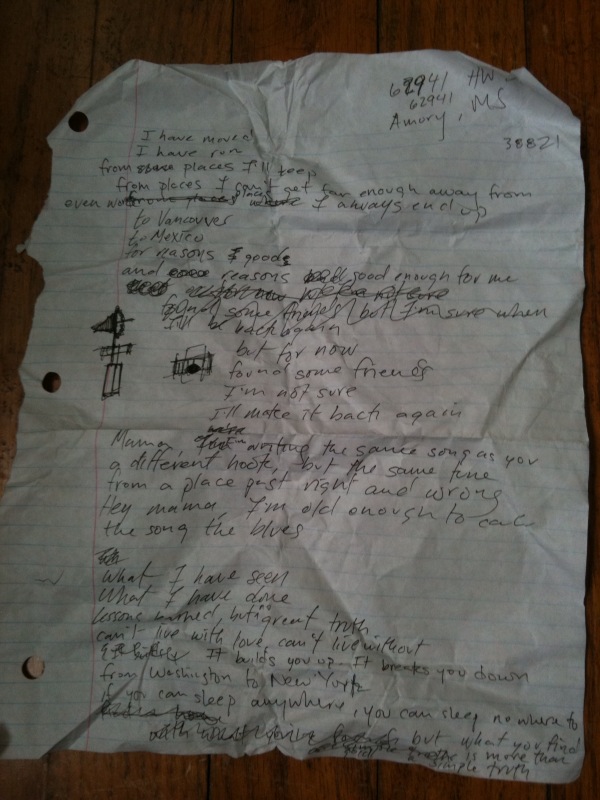 62941 HW
62941
Amory, MS
38821
I have moved
I have run
from places I'll keep
from places I can't get far enough away from
even I always end up
to Vancouver
to Mexico
for reasons goods
and reasons good enough for me
found some friends but I'm sure when
I'll be back again
but for now
found some friends
I'm not sure
I'll make it back again
Mama writing the same song as you
a different note, but the same tune
from a place past right and wrong
Hey mama, I'm old enough to call
the song the blues
What I have seen
What I have done
lessons learned, but no great truth
can't live with love, can't live without
It builds you up. It breaks you down
from Washington to New York
if you can sleep anywhere, you can sleep no where to
but what you find
is more than
simple truth